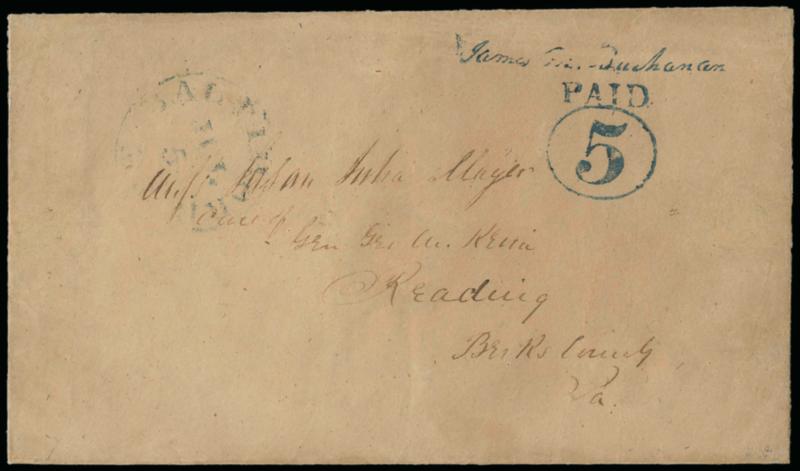 James M. Buchanan
PAID
5
BALTIMORE
Miss Julia Mayer
care of
Gen Geo M. Keim
Reading
Berks County
Pa.